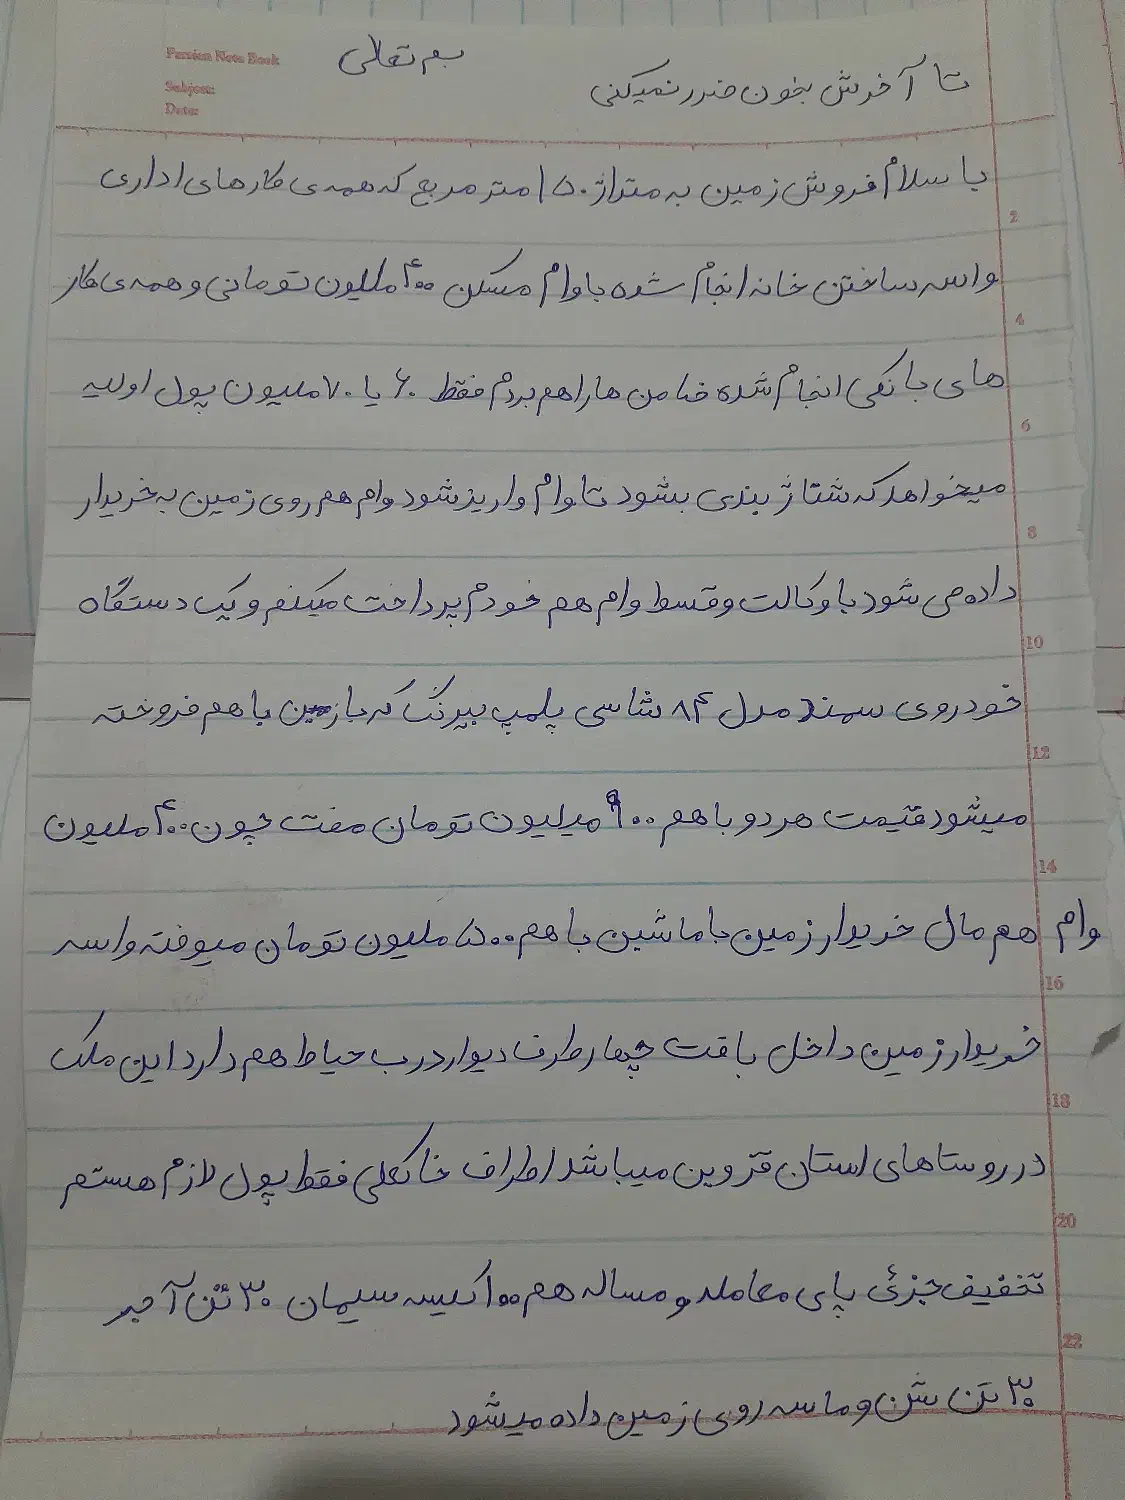 Persian Note Book
Subject:
Date:
بسم تعالی
تا آخرش بخون ضرر نمیکنی
با سلام فروش زمین به متراژ ۱۵۰ متر مربع که همه ی کارهای اداری
2
واسه ساختن خانه انجام شده با وام مسکن ۴۰۰ ملیون تومانی و همه ی کار
4
های بانکی انجام شده ضامن ها را هم بردم فقط ۶۰ یا ۷۰ ملیون پول اولیه
6
میخواهد که شناژ بندی بشود تا وام واریز شود وام هم روی زمین به خریدار
8
داده می شود با وکالت و قسط وام هم خودم پرداخت میکنم و یک دستگاه
10
خودروی سمند مدل ۸۴ شاسی پلمپ بیرنگ که با زمین با هم فروخته
12
میشود قیمت هر دو با هم ۹۰۰ میلیون تومان مفت چون ۴۰۰ ملیون
14
وام هم مال خریدار زمین با ماشین با هم ۵۰۰ ملیون تومان میوفته واسه
16
خریدار زمین داخل بافت چهار طرف دیوار درب حیاط هم دارد این ملک
18
در روستاهای استان قزوین میباشد اطراف فقط پول لازم هستم
20
تخفیف جزئی پای معامله و مساله هم ۱۰۰ کیسه سیمان ۳۰ تن آجر
22
۳۰ تن شن و ماسه روی زمین داده میشود